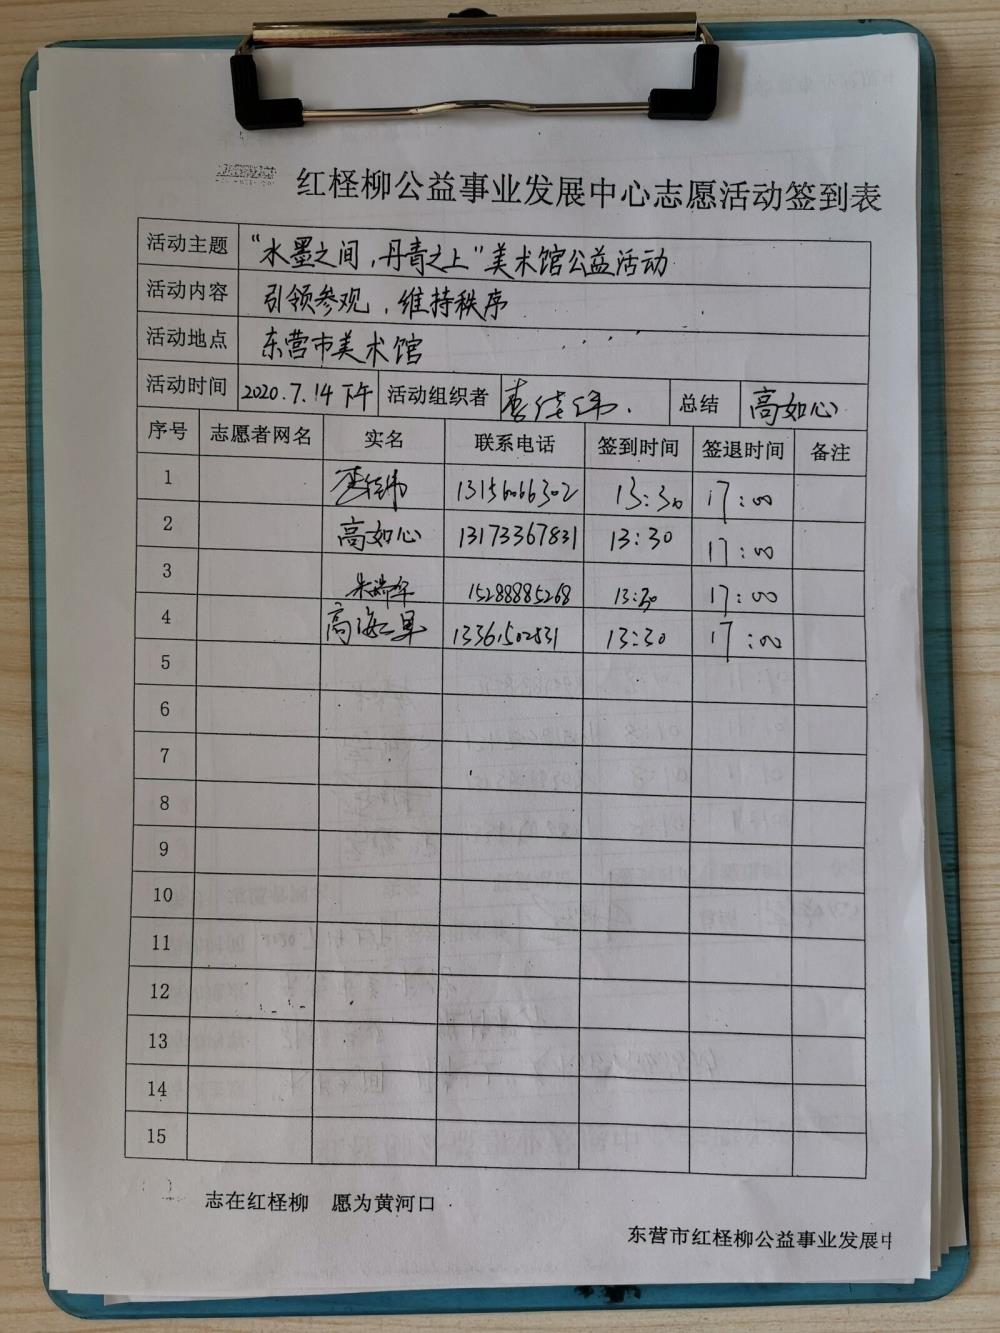 红柽柳公益事业发展中心志愿活动签到表
活动主题 “水墨之间，丹青之上”美术馆公益活动
活动内容 引领参观，维持秩序
活动地点 东营市美术馆
活动时间 2020.7.14下午 活动组织者 李佳纬. 总结 高如心
序号 志愿者网名 实名 联系电话 签到时间 签退时间 备注
1 李佳纬 13156066302 13:30 17:00
2 高如心 13173367831 13:30 17:00
3 15288885268 13:30 17:00
4 高海 13361502531 13:30 17:00
5
6
7
8
9
10
11
12
13
14
15
志在红柽柳 愿为黄河口
东营市红柽柳公益事业发展中